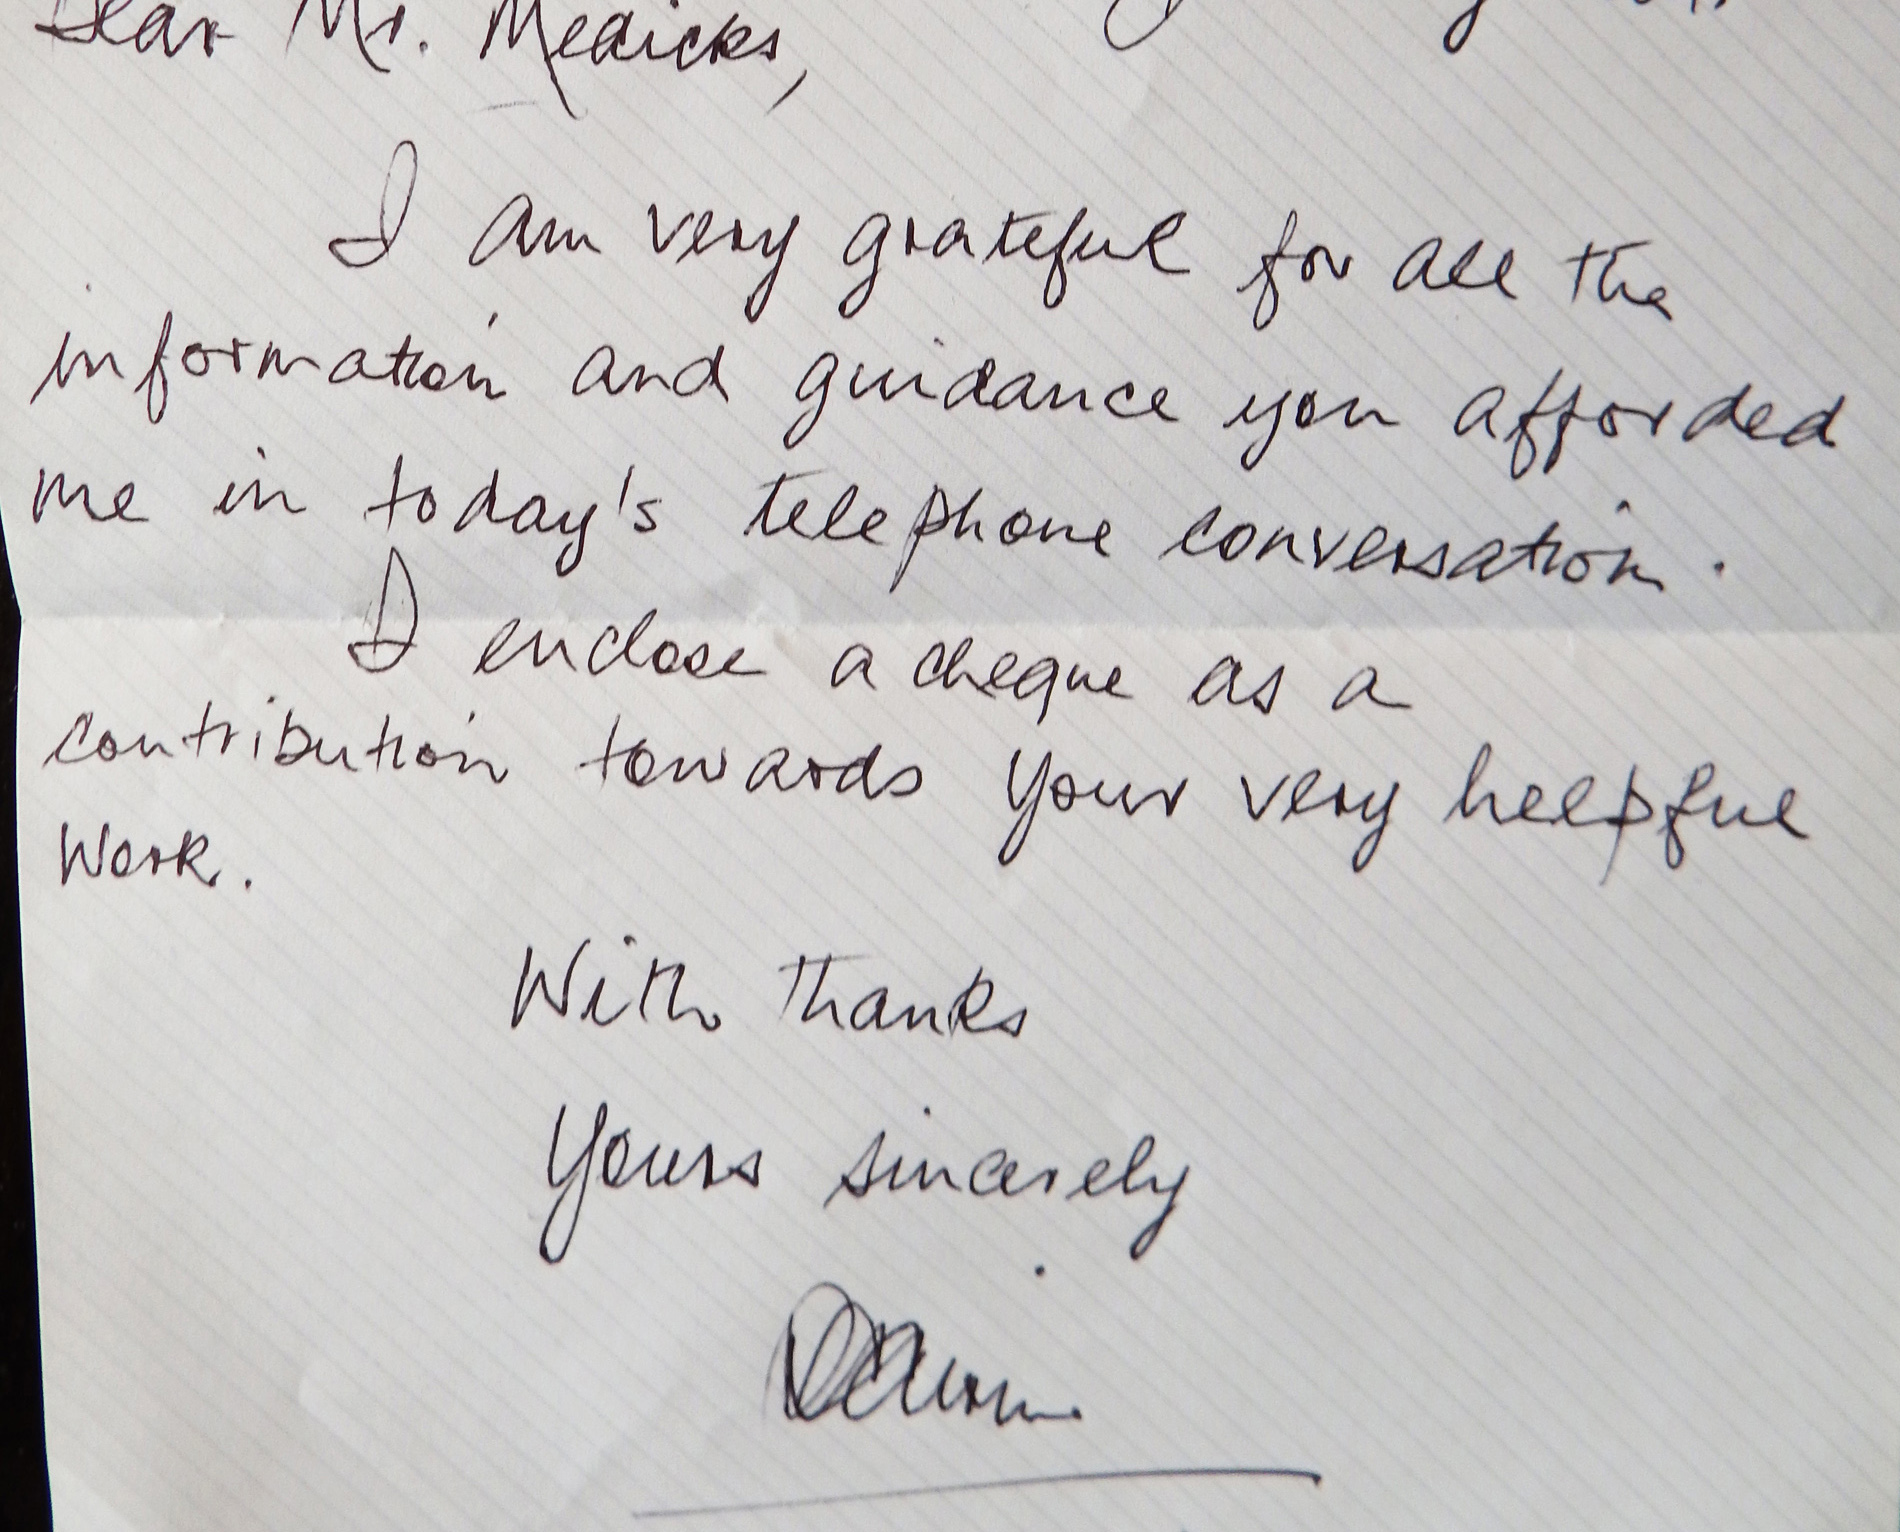 Dear Mr. Medicks,
I am very grateful for all the
information and guidance you afforded
me in today's telephone conversation.
I enclose a cheque as a
contribution towards your very helpful
work.
With thanks
Yours sincerely